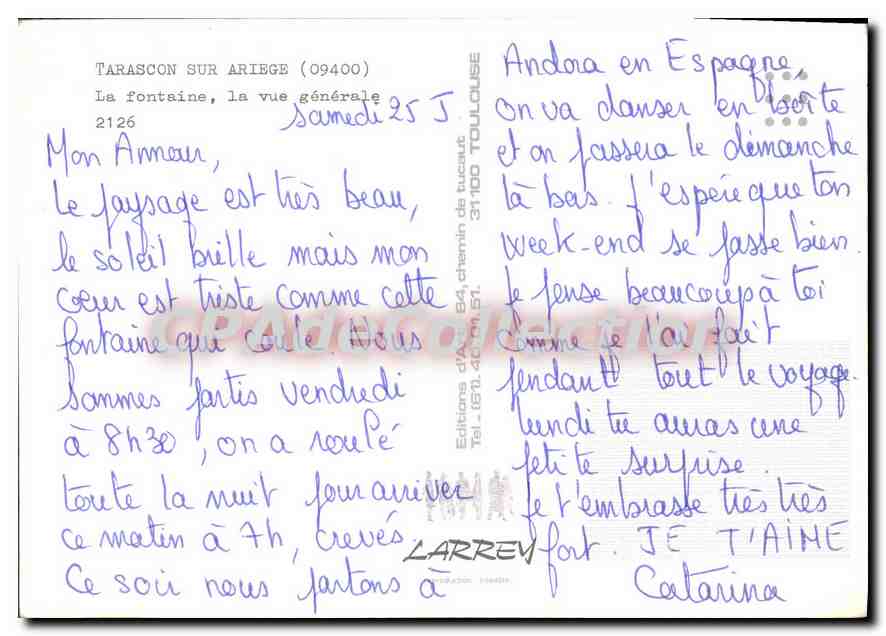 TARASCON SUR ARIEGE (09400)
La fontaine, la vue générale
2126
Samedi 25 J.
Mon Amour,
Le paysage est très beau,
le soleil brille mais mon
cœur est triste comme cette
fontaine qui coule. Nous
sommes partis vendredi
à 8h30, on a roulé
toute la nuit pour arriver
ce matin à 7h, crevés.
Ce soir nous partons à
Andora en Espagne,
on va danser en boîte
et on passera le démanche
là bas. J'espère que ton
week-end se passe bien.
Je pense beaucoup à toi
comme je l'ai fait
pendant tout le voyage.
Lundi tu auras une
petite surprise.
Je t'embrasse très très
fort. JE T'AIME
Catarina
Editions d'Art 84, chemin de tucaut
Tel. (61). 31100 TOULOUSE
LARREY
CPAdeCollection